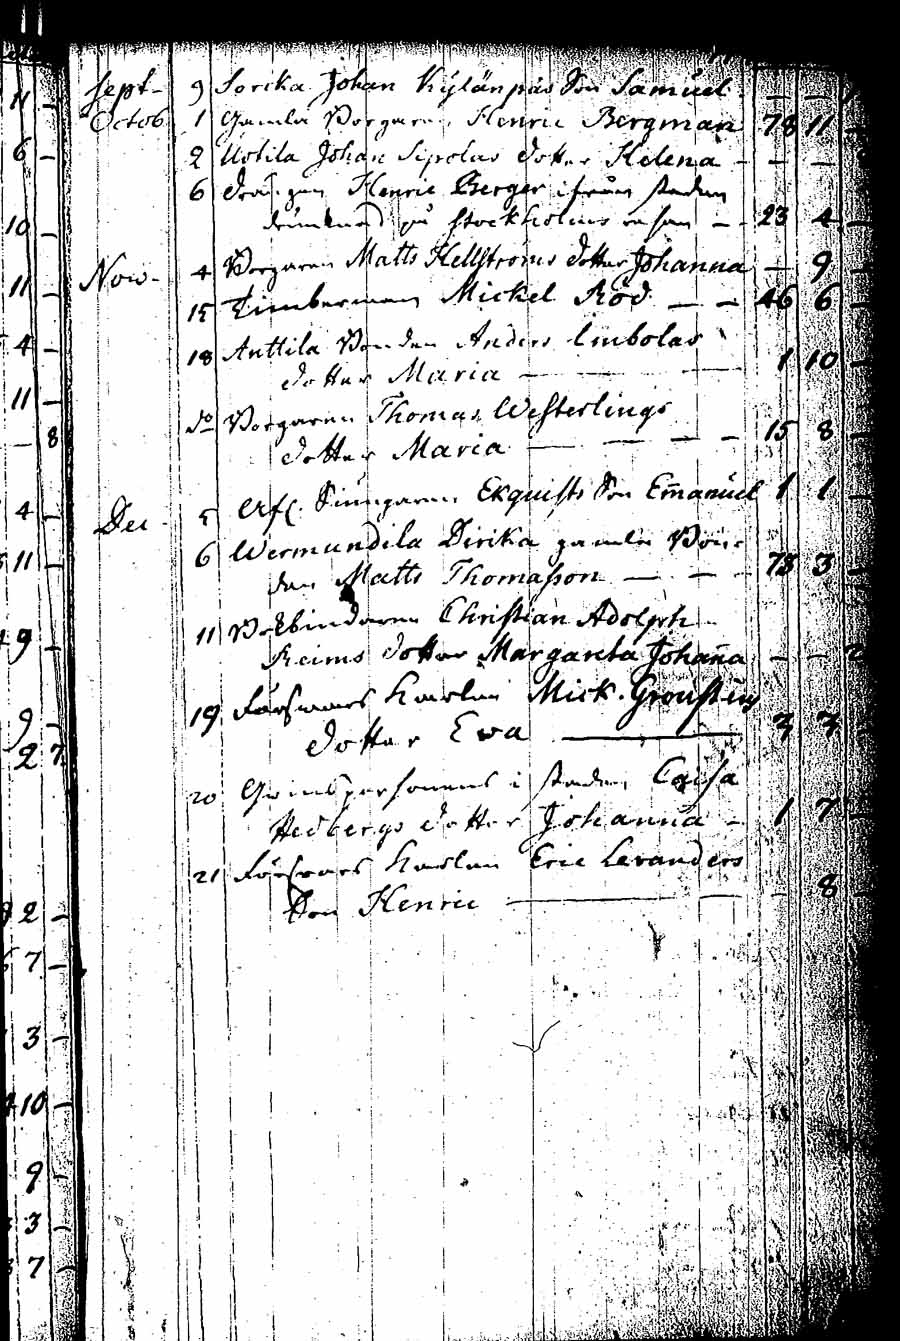 Sept- 9 Sorika Johan Kÿlänpäs Son Samuel - - 1
Octob 1 Gamla Borgaren Henric Bergman 78 11 -
2 Uotila Johan Sipolas dotter Helena - - -
6 drängen Henric Berger ifrån staden
på Stockholms - - 23 4 -
Nov- 4 Borgaren Matts Hellströms dotter Johanna - 9 -
15 Timberman Michel Röd - - 46 6 -
18 Anttila Bonden Anders Imbolas
dotter Maria - 1 10 -
do Borgaren Thomas Westerlings
dotter Maria - - - - 15 8 -
Dec 5 Afsk. Ekquists Son Em̄anuel 1 1 -
6 Wermundila Dirika gamla Bon-
den Matts Thomasson - - - 73 3 -
11 Bokbindaren Christian Adolph
Reims dotter Margareta Johan̄a - - 2
19 Försvars Karlen Mick. Gronstens
dotter Eva - 3 3
20 i staden Cajsa
Hedbergs dotter Johanna - 1 7 -
21 Försvars Karlen Eric Levanders
Son Henric - - - 8 -
11 -
6 -
10 -
11 -
4 -
11 -
- 8
4 -
11 -
9 -
9 -
2 7
2 -
7 -
3 -
10 -
9 -
3 -
7 -